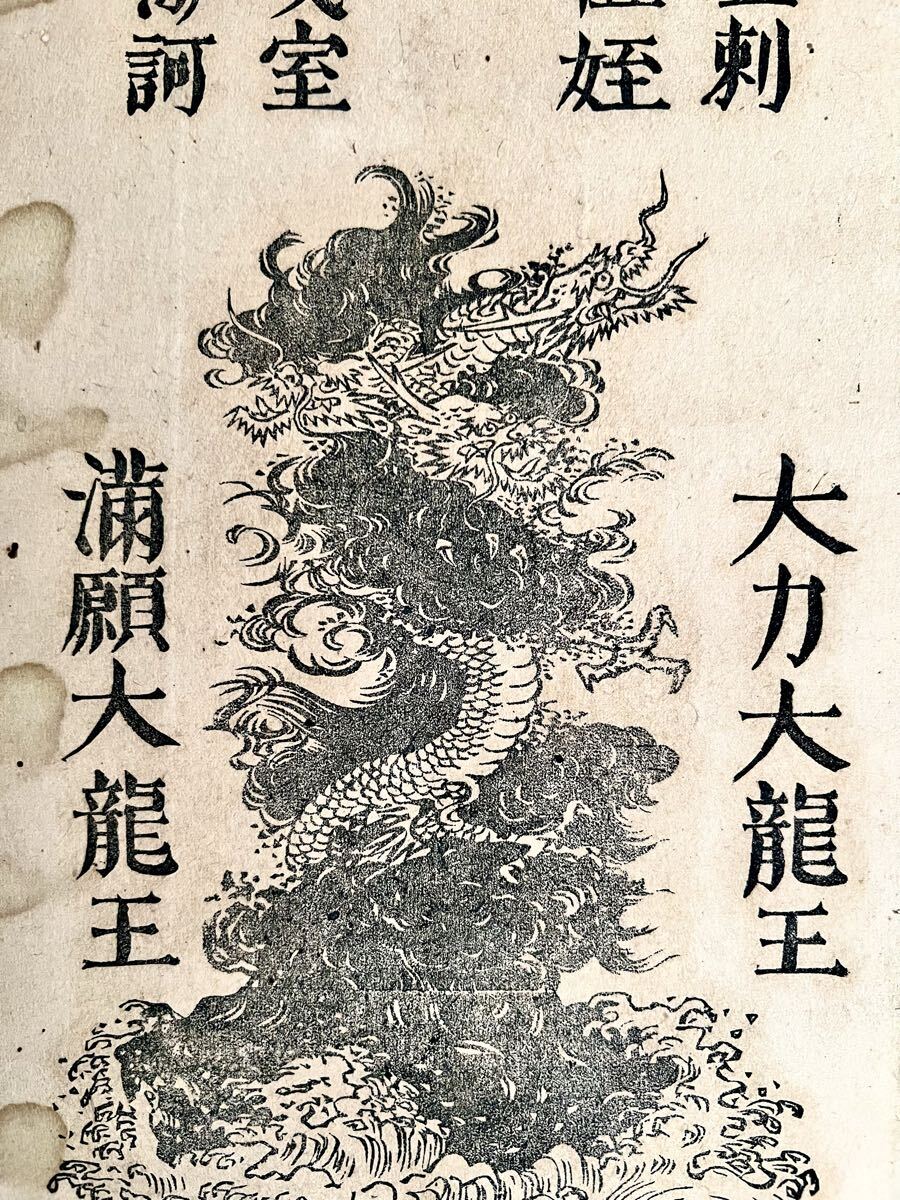 剌
姪
室
訶
大力大龍王
滿願大龍王